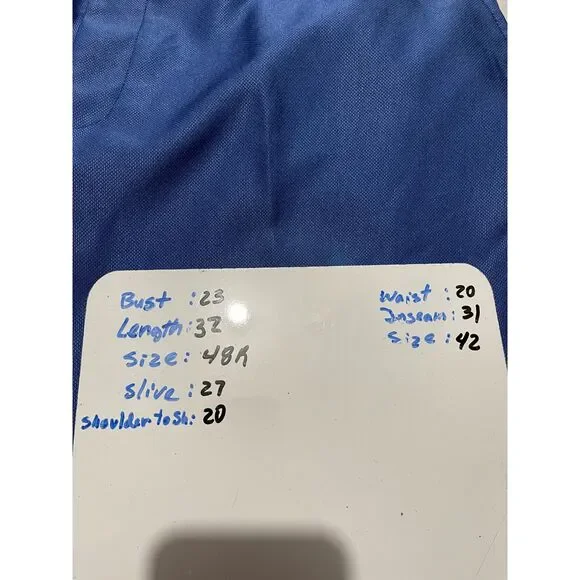 Bust : 23
Length: 32
Size: 48R
Slive : 27
Shoulder to Sh: 20
Waist : 20
Inseam: 31
Size: 42